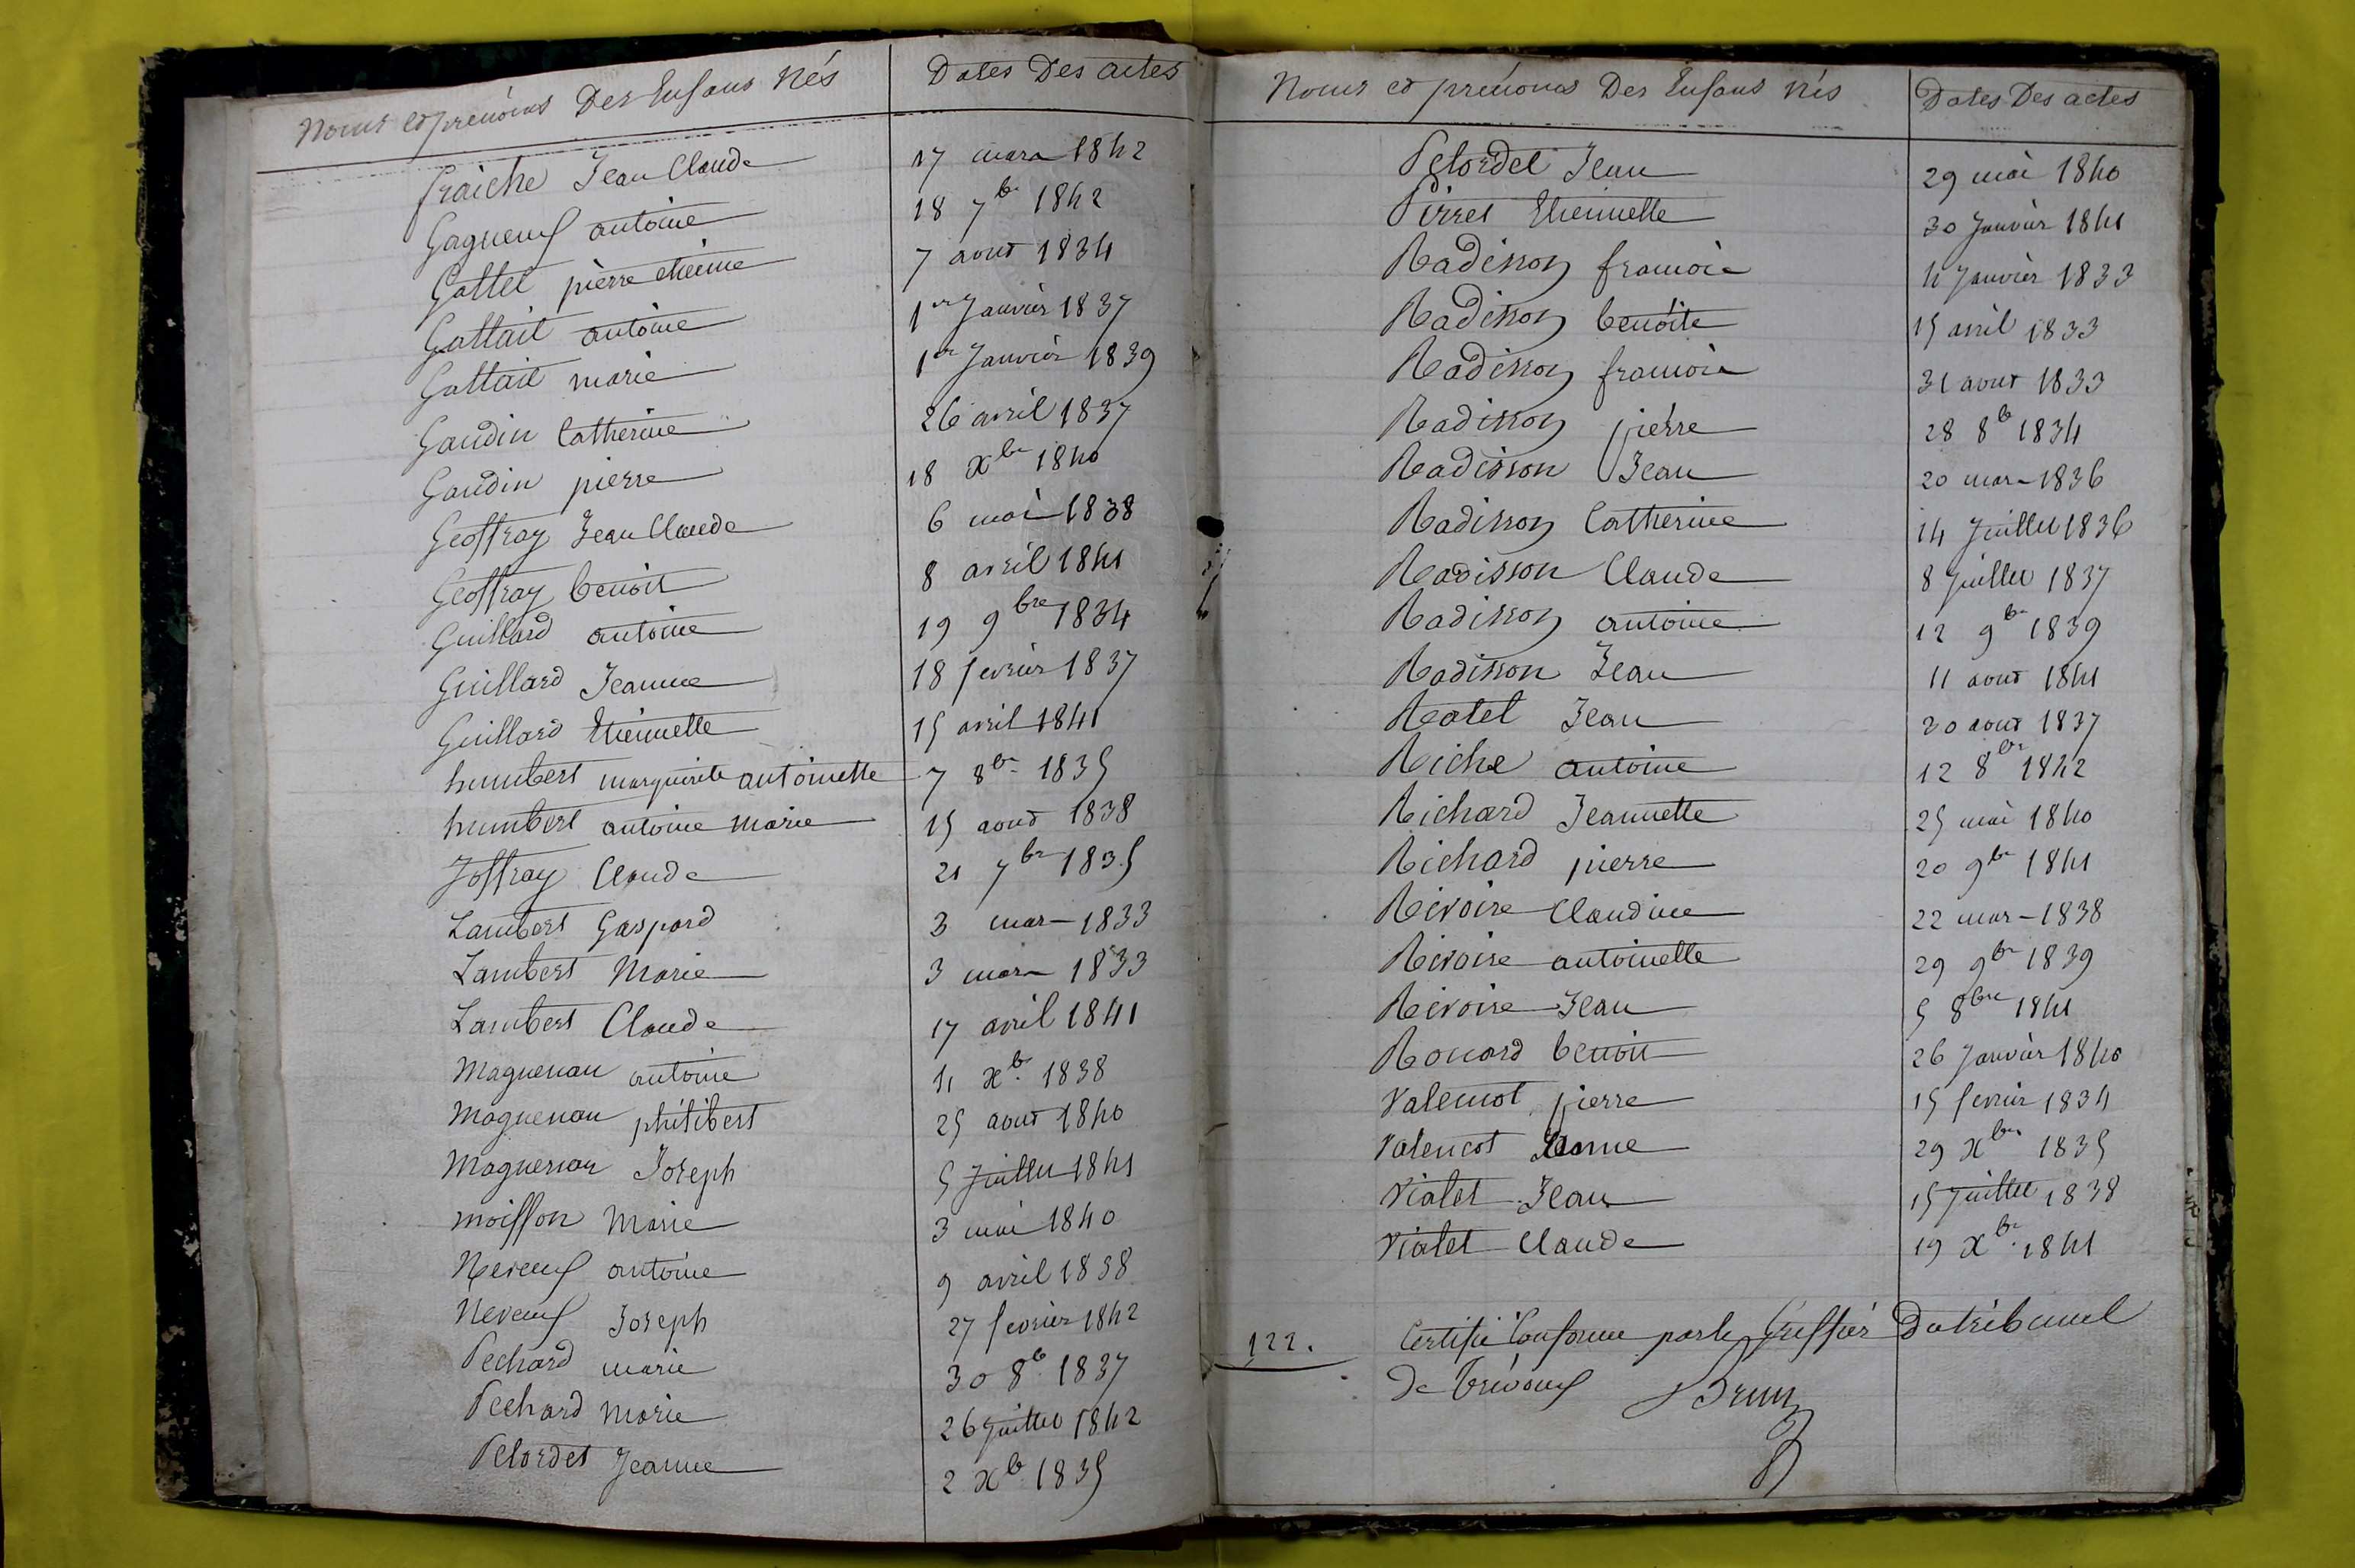 Noms et prénoms Des Enfans Nés
Dates Des actes
fraiche Jean Claude 17 mars 1842
Gagneux antoine 18 7bre 1842
Gattet pierre etienne 7 aout 1834
Gattait antoine 1er Janvier 1837
Gattait marie 1er Janvier 1839
Gaudin Catherine 26 avril 1837
Gaudin pierre 18 Xbre 1840
Geoffray Jean Claude 6 mai 1838
Geoffray benoit 8 avril 1841
Guillard antoine 19 9bre 1834
Guillard Jeanne 18 fevrier 1837
Guillard Etiennette 15 avril 1841
humbert marguerite antoinette 7 8bre 1835
humbert antoine Marie 15 aout 1838
Joffray Claude 21 7bre 1835
Lambert Gaspard 3 mars 1833
Lambert Marie 3 mars 1833
Lambert Claude 17 avril 1841
Maguenau antoine 11 Xbre 1838
Maguenau philibert 25 aout 1840
Maguenau Joseph 5 Juillet 1841
moisson Marie 3 mai 1840
Neveux antoine 9 avril 1838
Neveux Joseph 27 fevrier 1842
Pechard marie 30 8b 1837
Pechard Marie 26 Juillet 1842
Pelordet Jeanne 2 Xb 1835
Noms et prénoms Des Enfans Nés
Dates Des actes
Pelordet Jean 29 mai 1840
Pirret Etiennette 30 Janvier 1841
Radisson francois 4 Janvier 1833
Radisson benoite 15 avril 1833
Radisson francois 31 aout 1833
Radisson pierre 28 8b 1834
Radisson Jean 20 mars 1836
Radisson Catherine 14 Juillet 1836
Radisson Claude 8 Juillet 1837
Radisson antoine 12 9bre 1839
Radisson Jean 11 aout 1841
Ratet Jean 20 aout 1837
Riche antoine 12 8bre 1842
Richard Jeannette 25 mai 1840
Richard pierre 20 9bre 1841
Rivoire Claudine 22 mars 1838
Rivoire antoinette 29 9bre 1839
Rivoire Jean 5 8bre 1841
Ronard benoit 26 Janvier 1840
Valencot pierre 15 fevrier 1834
Valencot Jeanne 29 Xbre 1835
Vialet Jean 15 Juillet 1838
Vialet Claude 19 Xbre 1841
122. Certifié Conforme par le Greffier Du tribunal
de Trévoux Brun